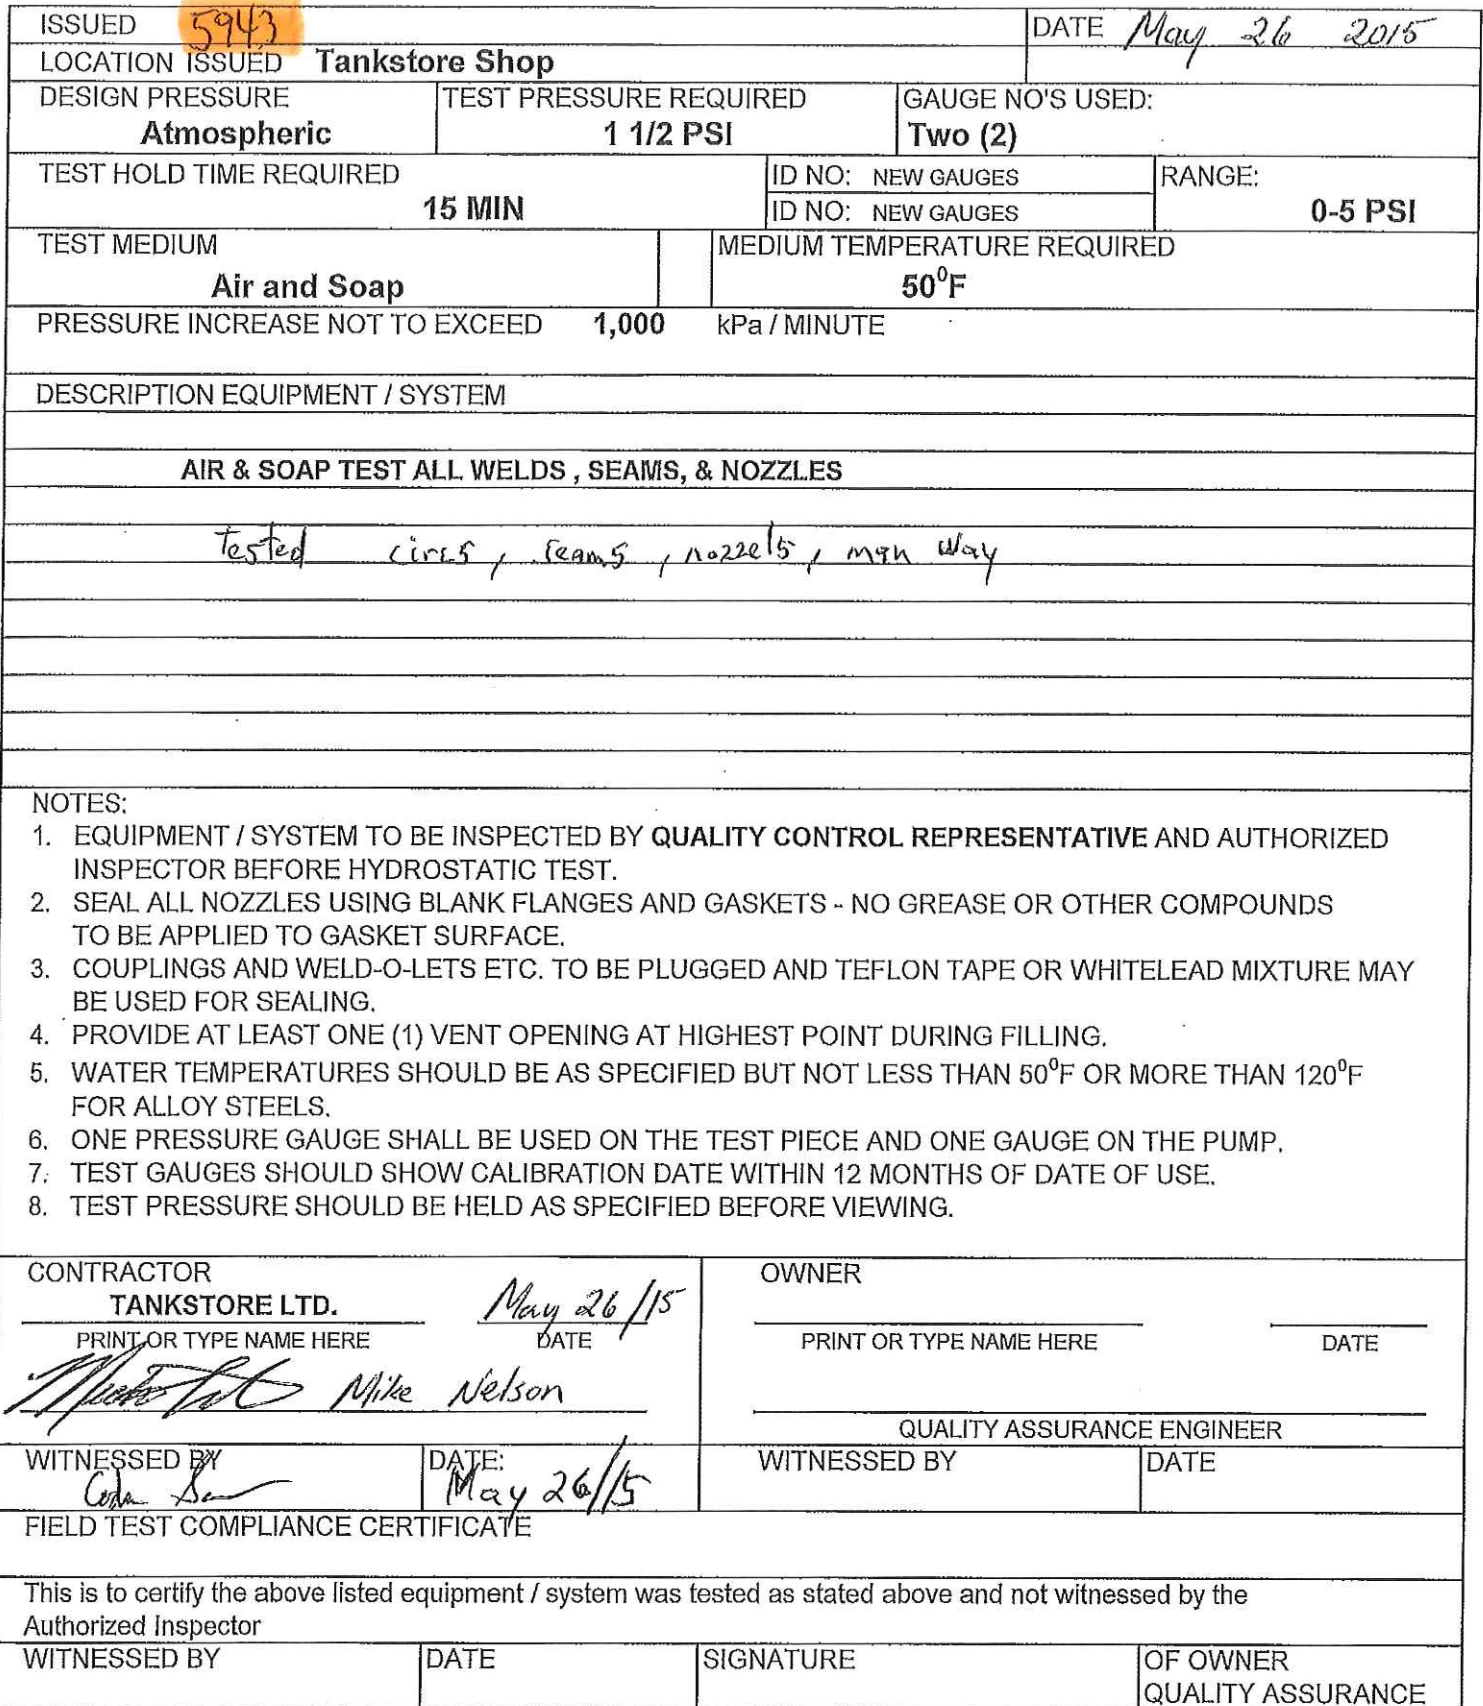 ISSUED 5943 DATE May 26 2015
LOCATION ISSUED Tankstore Shop
DESIGN PRESSURE TEST PRESSURE REQUIRED GAUGE NO'S USED:
Atmospheric 1 1/2 PSI Two (2)
TEST HOLD TIME REQUIRED ID NO: NEW GAUGES RANGE:
15 MIN ID NO: NEW GAUGES 0-5 PSI
TEST MEDIUM MEDIUM TEMPERATURE REQUIRED
Air and Soap 50⁰F
PRESSURE INCREASE NOT TO EXCEED 1,000 kPa / MINUTE
DESCRIPTION EQUIPMENT / SYSTEM
AIR & SOAP TEST ALL WELDS , SEAMS, & NOZZLES
Tested circs, seams, nozzels, man way
NOTES:
1. EQUIPMENT / SYSTEM TO BE INSPECTED BY QUALITY CONTROL REPRESENTATIVE AND AUTHORIZED
INSPECTOR BEFORE HYDROSTATIC TEST.
2. SEAL ALL NOZZLES USING BLANK FLANGES AND GASKETS - NO GREASE OR OTHER COMPOUNDS
TO BE APPLIED TO GASKET SURFACE.
3. COUPLINGS AND WELD-O-LETS ETC. TO BE PLUGGED AND TEFLON TAPE OR WHITELEAD MIXTURE MAY
BE USED FOR SEALING.
4. PROVIDE AT LEAST ONE (1) VENT OPENING AT HIGHEST POINT DURING FILLING.
5. WATER TEMPERATURES SHOULD BE AS SPECIFIED BUT NOT LESS THAN 50⁰F OR MORE THAN 120⁰F
FOR ALLOY STEELS.
6. ONE PRESSURE GAUGE SHALL BE USED ON THE TEST PIECE AND ONE GAUGE ON THE PUMP.
7. TEST GAUGES SHOULD SHOW CALIBRATION DATE WITHIN 12 MONTHS OF DATE OF USE.
8. TEST PRESSURE SHOULD BE HELD AS SPECIFIED BEFORE VIEWING.
CONTRACTOR OWNER
TANKSTORE LTD. May 26/15
PRINT OR TYPE NAME HERE DATE PRINT OR TYPE NAME HERE DATE
Mike Nelson
QUALITY ASSURANCE ENGINEER
WITNESSED BY DATE: WITNESSED BY DATE
May 26/15
FIELD TEST COMPLIANCE CERTIFICATE
This is to certify the above listed equipment / system was tested as stated above and not witnessed by the
Authorized Inspector
WITNESSED BY DATE SIGNATURE OF OWNER
QUALITY ASSURANCE